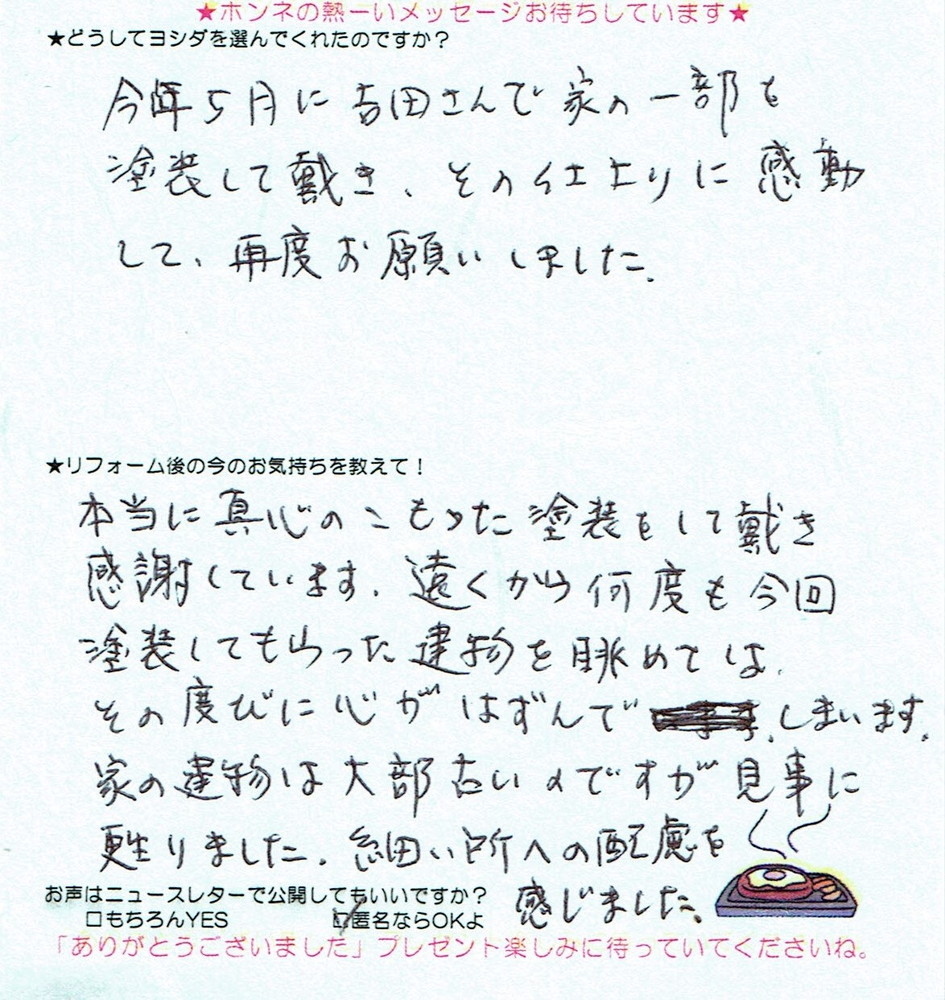 ★ホンネの熱ーいメッセージお待ちしています★
★どうしてヨシダを選んでくれたのですか？
今年5月に吉田さんで家の一部を
塗装して戴き、その仕上りに感動
して、再度お願いしました。
★リフォーム後の今のお気持ちを教えて！
本当に真心のこもった塗装をして戴き
感謝しています。遠くから何度も今回
塗装してもらった建物を眺めては、
その度びに心がはずんでしまいます。
家の建物は大部古いのですが見事に
甦りました。細い所への配慮を
感じました。
お声はニュースレターで公開してもいいですか？
□もちろんYES ☑匿名ならOKよ
「ありがとうございました」プレゼント楽しみに待っていてくださいね。